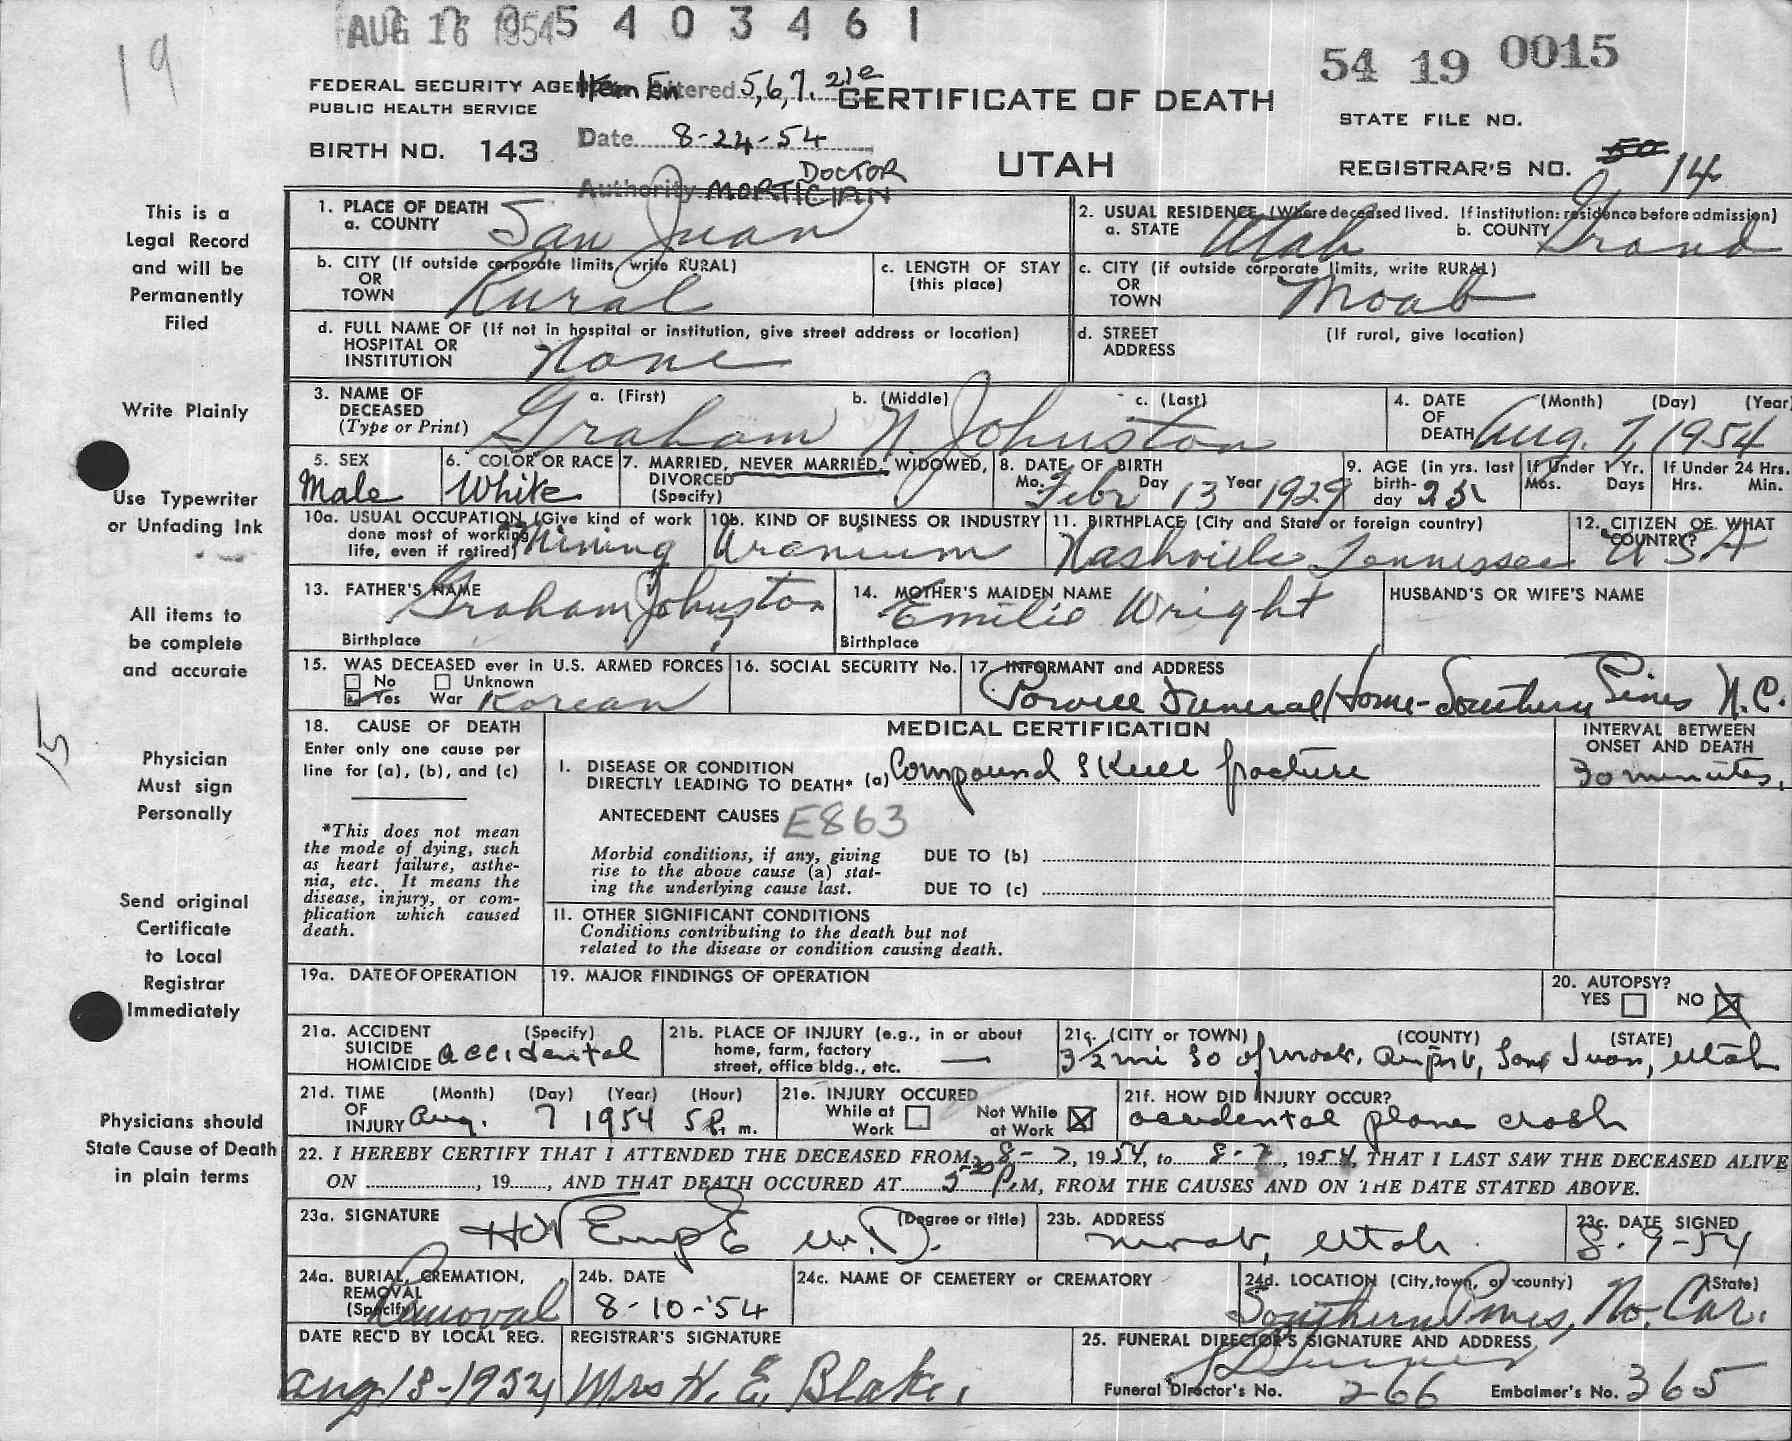 AUG 16 1954 5 4 0 3 4 6 1
54 19 0015
19
FEDERAL SECURITY AGE Item Entered 5,6,7. 21e CERTIFICATE OF DEATH
PUBLIC HEALTH SERVICE
STATE FILE NO.
Date 8-24-54
BIRTH NO. 143 UTAH REGISTRAR'S NO. 50 14
DOCTOR
Authority MORTICIAN
This is a
Legal Record
and will be
Permanently
Filed
1. PLACE OF DEATH
a. COUNTY San Juan
2. USUAL RESIDENCE (Where deceased lived. If institution: residence before admission)
a. STATE Utah b. COUNTY Grand
b. CITY (If outside corporate limits, write RURAL)
OR
TOWN Rural
c. LENGTH OF STAY
(this place)
c. CITY (if outside corporate limits, write RURAL)
OR
TOWN Moab
d. FULL NAME OF (If not in hospital or institution, give street address or location)
HOSPITAL OR
INSTITUTION None
d. STREET (If rural, give location)
ADDRESS
Write Plainly
3. NAME OF
DECEASED
(Type or Print)
a. (First) b. (Middle) c. (Last)
Graham N. Johnston
4. DATE (Month) (Day) (Year)
OF
DEATH Aug. 7, 1954
Use Typewriter
or Unfading Ink
5. SEX
Male
6. COLOR OR RACE
White
7. MARRIED, NEVER MARRIED, WIDOWED,
DIVORCED
(Specify)
8. DATE OF BIRTH
Mo. Febr Day 13 Year 1929
9. AGE (in yrs. last
birth-
day 25
If Under 1 Yr.
Mos. Days
If Under 24 Hrs.
Hrs. Min.
10a. USUAL OCCUPATION (Give kind of work
done most of working
life, even if retired) Mining
10b. KIND OF BUSINESS OR INDUSTRY
Uranium
11. BIRTHPLACE (City and State or foreign country)
Nashville Tennessee
12. CITIZEN OF WHAT
COUNTRY?
USA
All items to
be complete
and accurate
13. FATHER'S NAME
Graham Johnston
Birthplace
14. MOTHER'S MAIDEN NAME
Emilie Wright
Birthplace
HUSBAND'S OR WIFE'S NAME
15. WAS DECEASED ever in U.S. ARMED FORCES
No Unknown
Yes War Korean
16. SOCIAL SECURITY No.
17. INFORMANT and ADDRESS
Powell Funeral Home - Southern Pines N.C.
15
Physician
Must sign
Personally
18. CAUSE OF DEATH
Enter only one cause per
line for (a), (b), and (c)
*This does not mean
the mode of dying, such
as heart failure, asthe-
nia, etc. It means the
disease, injury, or com-
plication which caused
death.
MEDICAL CERTIFICATION
I. DISEASE OR CONDITION
DIRECTLY LEADING TO DEATH* (a) Compound Skull fracture
ANTECEDENT CAUSES E863
Morbid conditions, if any, giving
rise to the above cause (a) stat-
ing the underlying cause last.
DUE TO (b)
DUE TO (c)
INTERVAL BETWEEN
ONSET AND DEATH
30 minutes.
II. OTHER SIGNIFICANT CONDITIONS
Conditions contributing to the death but not
related to the disease or condition causing death.
Send original
Certificate
to Local
Registrar
Immediately
19a. DATE OF OPERATION
19. MAJOR FINDINGS OF OPERATION
20. AUTOPSY?
YES NO
21a. ACCIDENT (Specify)
SUICIDE
HOMICIDE accidental
21b. PLACE OF INJURY (e.g., in or about
home, farm, factory
street, office bldg., etc.
21c. (CITY or TOWN) (COUNTY) (STATE)
32 mi So of Moab, San Juan, Utah
21d. TIME (Month) (Day) (Year) (Hour)
OF
INJURY Aug. 7 1954 5 P. m.
21e. INJURY OCCURED
While at
Work
Not While
at Work
21f. HOW DID INJURY OCCUR?
accidental plane crash
Physicians should
State Cause of Death
in plain terms
22. I HEREBY CERTIFY THAT I ATTENDED THE DECEASED FROM 8-7, 1954, to 8-7, 1954, THAT I LAST SAW THE DECEASED ALIVE
ON , 19 , AND THAT DEATH OCCURED AT 5:30 P.M, FROM THE CAUSES AND ON THE DATE STATED ABOVE.
23a. SIGNATURE (Degree or title)
M.D.
23b. ADDRESS
Moab, Utah
23c. DATE SIGNED
8-9-54
24a. BURIAL, CREMATION,
REMOVAL
(Specify) Removal
24b. DATE
8-10-'54
24c. NAME OF CEMETERY or CREMATORY
24d. LOCATION (City, town, or county) (State)
Southern Pines, No. Car.
DATE REC'D BY LOCAL REG.
Aug 13-1954
REGISTRAR'S SIGNATURE
Mrs H. E. Blake.
25. FUNERAL DIRECTOR'S SIGNATURE AND ADDRESS
Funeral Director's No. 266 Embalmer's No. 365